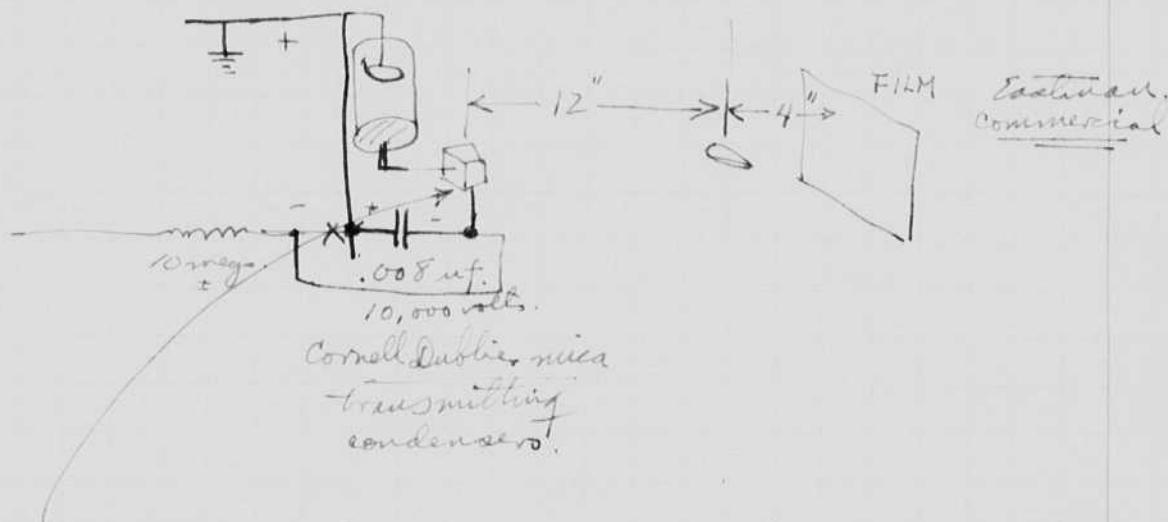 +
12"
4"
FILM
Eastman.
Commercial
-
+
-
10 meg.
±
.008 uf.
10,000 volts.
Cornell Dublier mica
transmitting
condensers.